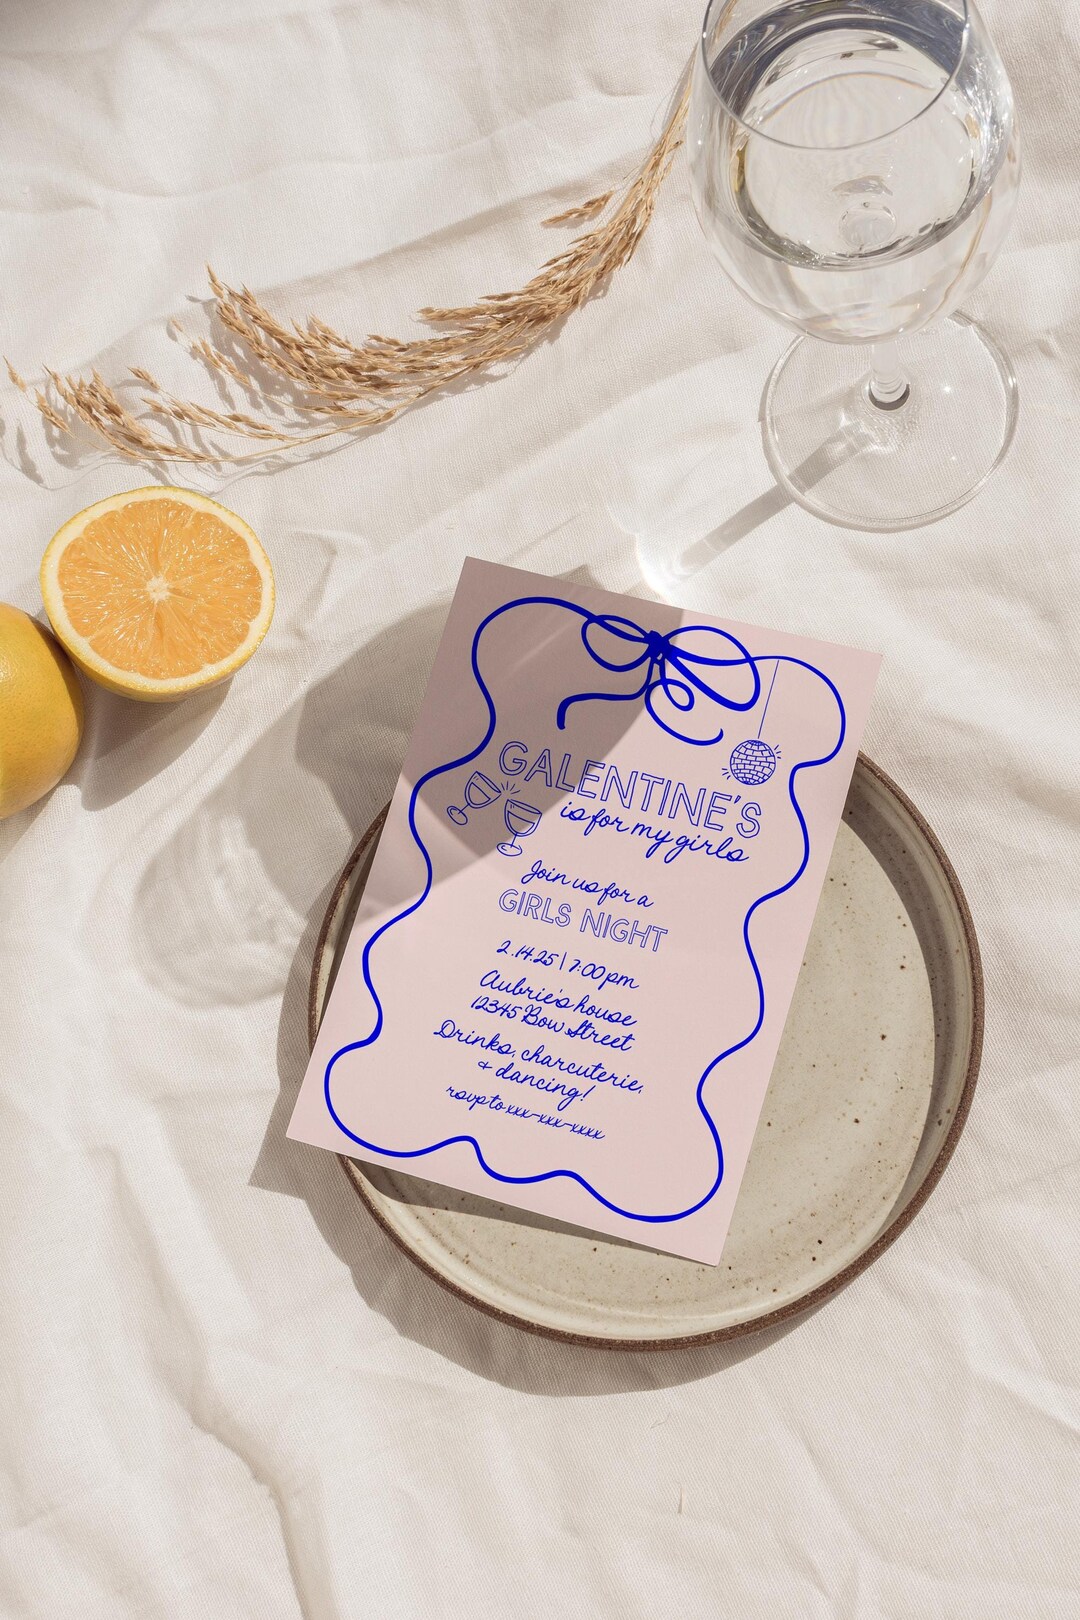 GALENTINE'S
is for my girls
Join us for a
GIRLS NIGHT
2.14.25 | 7:00 pm
Aubrie's house
12345 Bow Street
Drinks, charcuterie,
+ dancing!
rsvp to xxx-xxx-xxxx